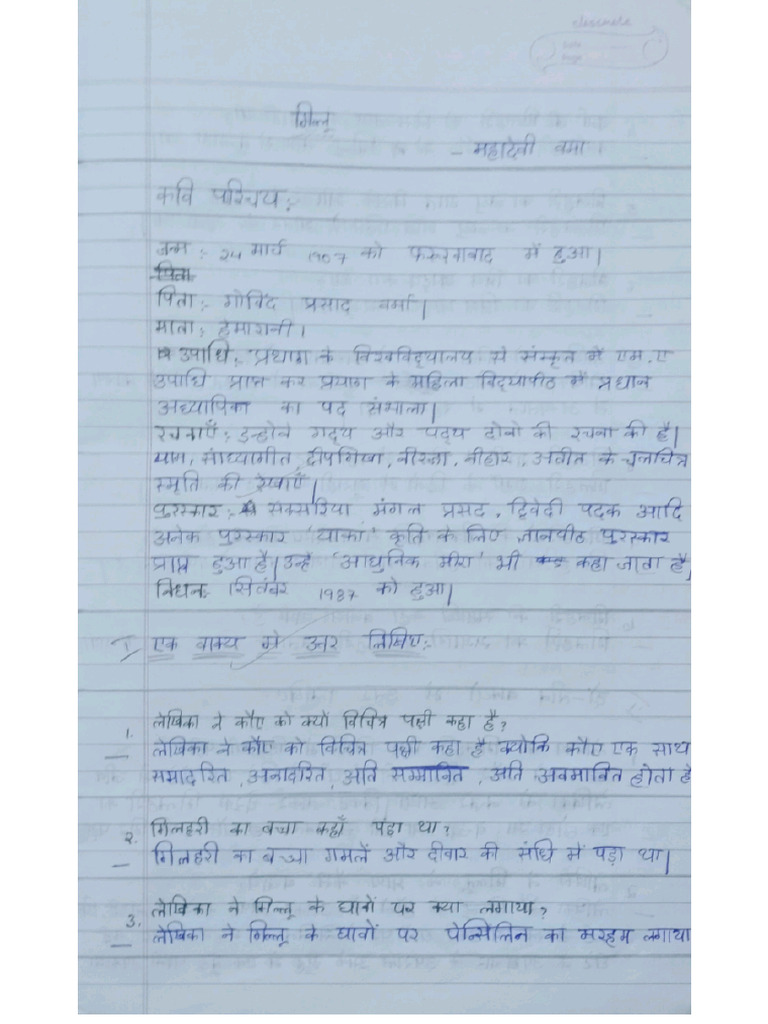 classmate
Date
Page
गिल्लू
- महादेवी वर्मा
कवि परिचय :-
जन्म :- 24 मार्च 1907 को फरुखाबाद में हुआ।
पिता
पिता :- गोविंद प्रसाद वर्मा।
माता : हेमारानी।
उपाधि :- प्रयाग के विश्वविद्यालय से संस्कृत में एम.ए
उपाधि प्राप्त कर प्रयाग के महिला विद्यापीठ में प्रधान
अध्यापिका का पद संभाला।
रचनाएँ :- इन्होंने गद्य और पद्य दोनो की रचना की है।
सांध्यागीत, दीपशिखा, नीरजा, नीहार, अतीत के चलचित्र
स्मृति की रेखाएँ।
पुरस्कार :- सेक्सरिया मंगल प्रसद, द्विवेदी पदक आदि
अनेक पुरस्कार 'यामा' कृति के लिए ज्ञानपीठ पुरस्कार
प्राप्त हुआ है। उन्हे 'आधुनिक मीरा' भी कहा जाता है,
निधन :- सितंबर 1987 को हुआ।
I एक वाक्य में उत्तर लिखिए :-
1. लेखिका ने कौए को क्यों विचित्र पक्षी कहा है?
— लेखिका ने कौए को विचित्र पक्षी कहा है क्योंकि कौए एक साथ
समादरित, अनादरित, अति सम्मानित, अति अवमानित होता है
2. गिलहरी का बच्चा कहाँ पड़ा था?
— गिलहरी का बच्चा गमलें और दीवार की संधि में पड़ा था।
3. लेखिका ने गिल्लू के घावों पर क्या लगाया?
— लेखिका ने गिल्लू के घावों पर पेन्सिलिन का मरहम लगाया